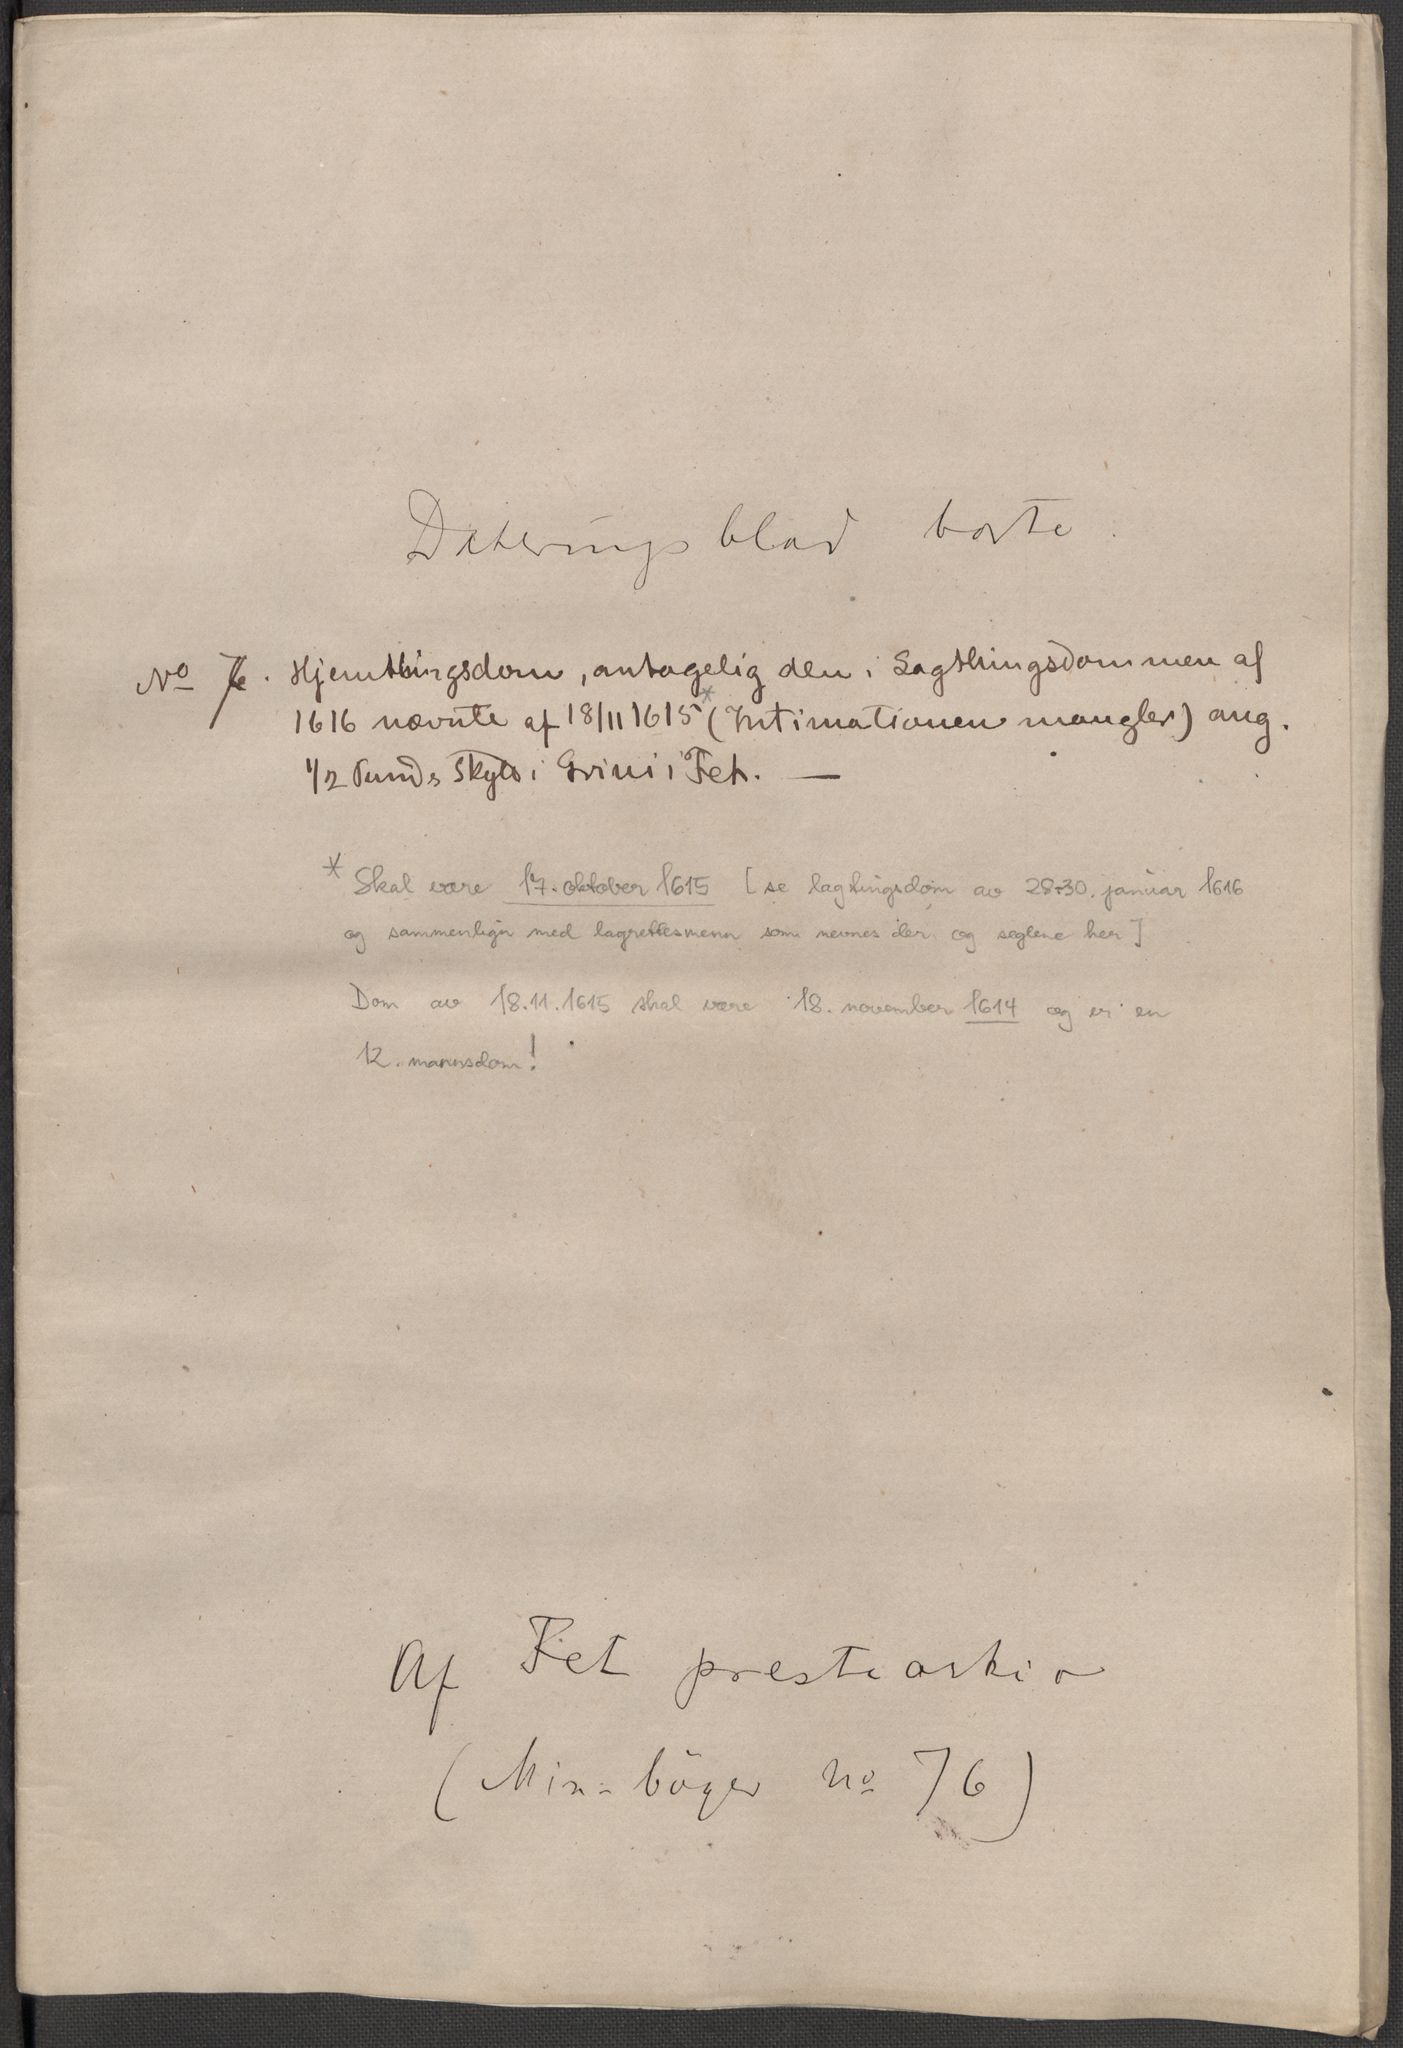 Dateringsblad borte.
No 7. Hjemthingsdom, antagelig den i Lagthingsdommen af
1616 nævnte af 18/11 1615* (Intimationen mangler) ang.
1/2 Punds Skyld i Grini i Fet. —
* Skal være 17. oktober 1615 [se lagtingsdom av 28-30. januar 1616
og sammenlign med lagrettesmenn som nevnes der og seglene her]
Dom av 18.11.1615 skal være 18. november 1614 og er en
12. mannsdom!
Af Fet prestearkiv
(Min. böger no 76)